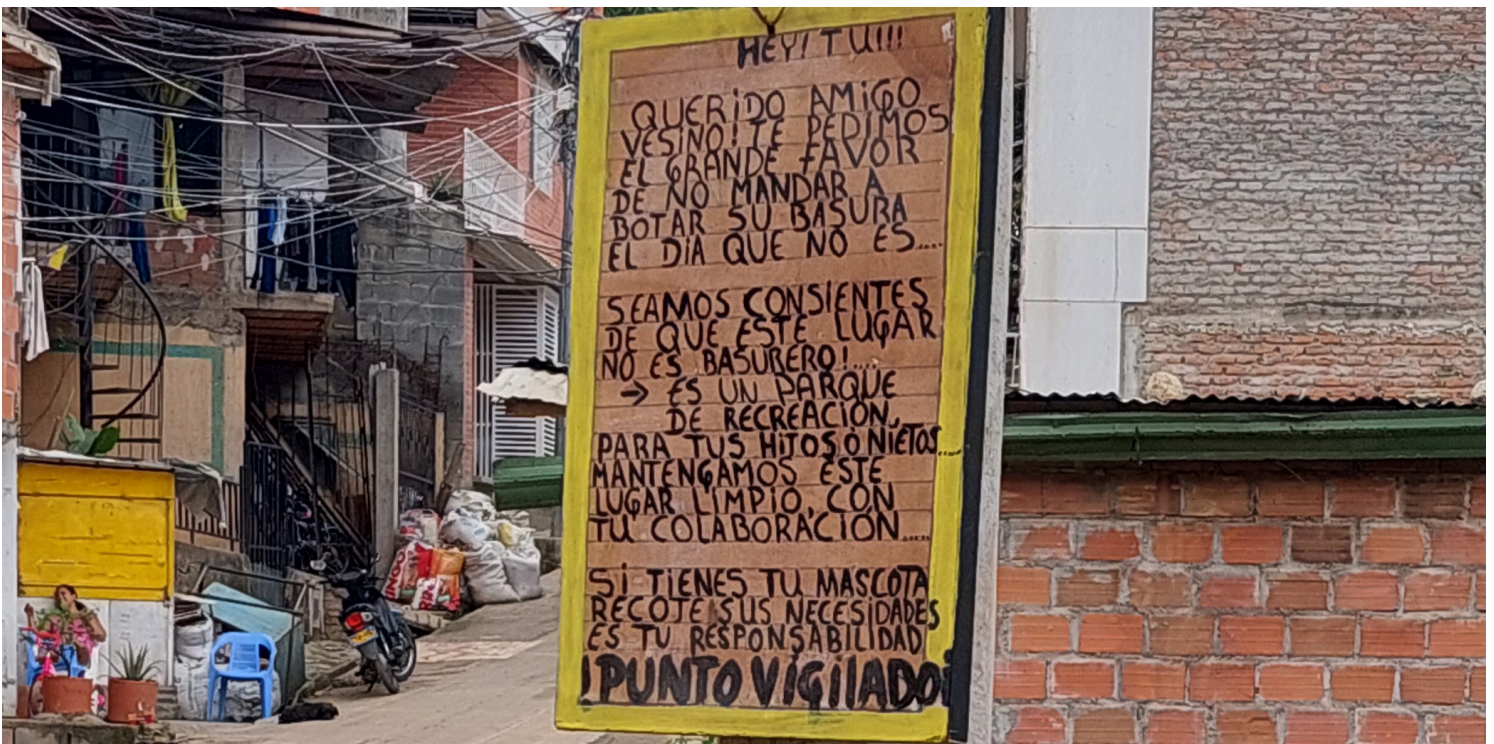 HEY! TU!!!
QUERIDO AMIGO
VESINO! TE PEDIMOS
EL GRANDE FAVOR
DE NO MANDAR A
BOTAR SU BASURA
EL DIA QUE NO ES....
SEAMOS CONSIENTES
DE QUE ESTE LUGAR
NO ES BASURERO!....
→ ES UN PARQUE
DE RECREACIÓN,
PARA TUS HIJOS O NIETOS....
MANTENGAMOS ESTE
LUGAR LIMPIO, CON
TU COLABORACIÓN.....
SI TIENES TU MASCOTA
RECOTE SUS NECESIDADES
ES TU RESPONSABILIDAD
¡PUNTO VIGILADO!